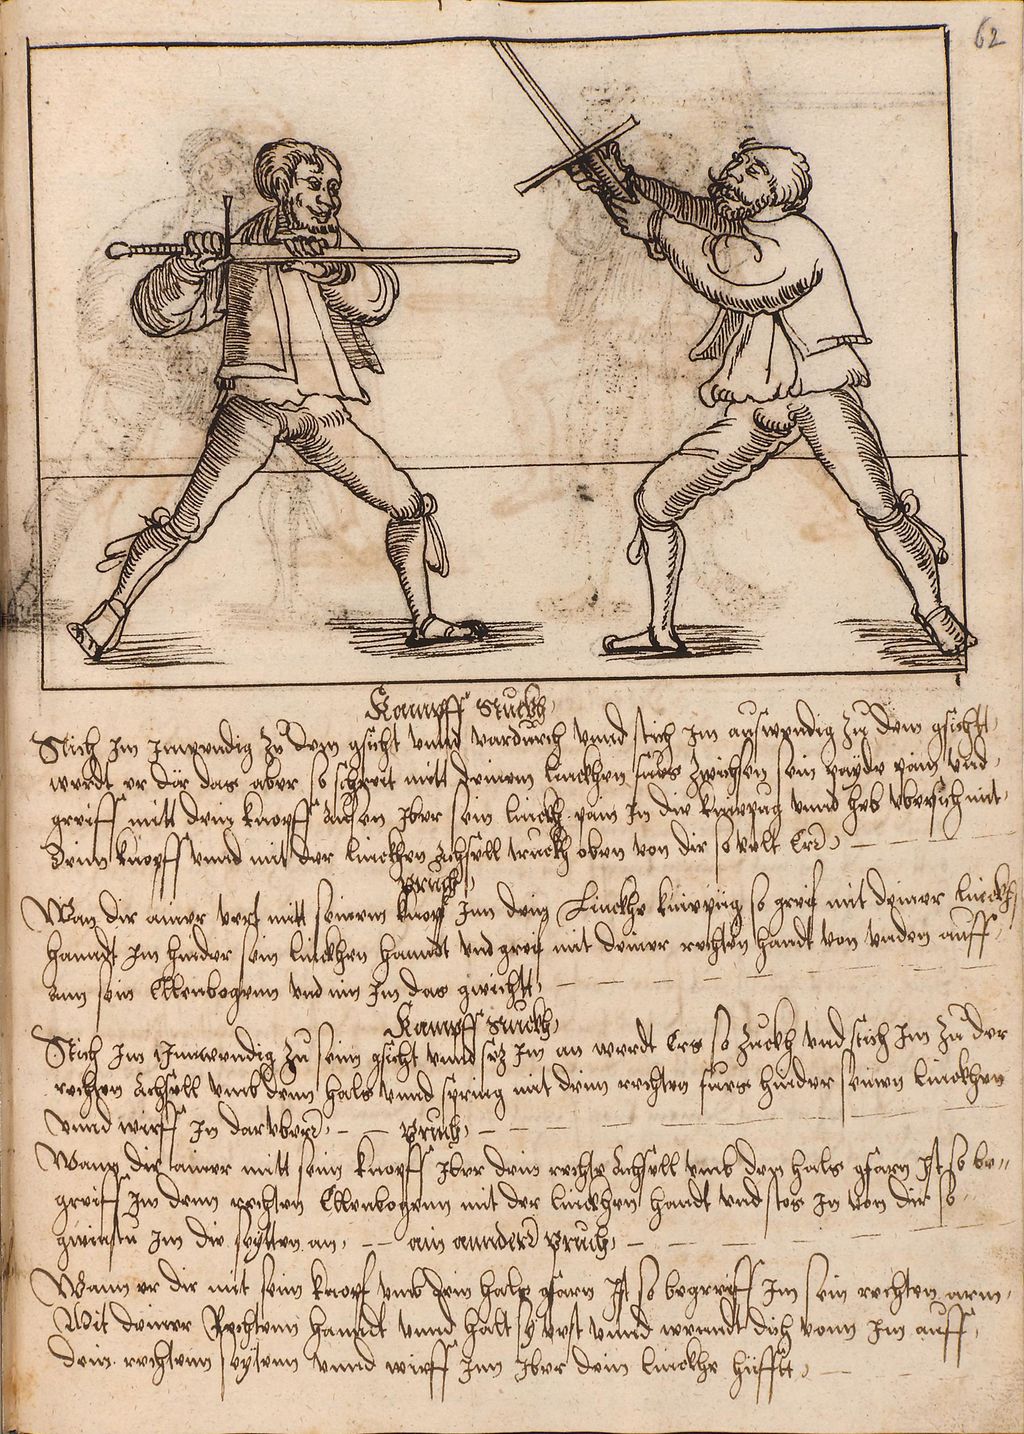 62
Kampff stuckh
Stich Im Inwendig zu dem gsicht unnd vardurch unnd stich Im auswendig zu dem gsicht
werdt er dir das aber so schreit mitt deinem linckhen fues zwischen sein payde pain und
greiff mitt dein knopff Aussen Iber sein linckh pain In die kniepug unnd heb ubersich mit
deim knopff unnd mit der linckhen Achsell truckh oben von dir so velt Er
Pruch
Wan dir ainer vert mitt seinem knopf Inn dein Linckhe kniepüg so greif mit deiner linckh
hanndt Im hinder sein linckhen hanndt und greif mit deiner rechten handt von unden auff
ann sein Ellenbogenn und nim Im das gwicht
Kampff stuckh
Stich Im Innwendig zu seim gsicht unnd setz Im an werdt Ers so zuckh und stich Im zu der
rechten Achsell umb denn hals unnd spring mit deim rechten fues hinder seinen linckhen
unnd wirff In daruber
Pruch
Wann dir ainer mitt seim knopff Iber dein rechte Achsell umb den hals gfarn Ist so be
greiff Im denn rechten Ellenbogenn mit der linckhen handt und stos In von dir so
gwinstu Im die seytten an
ain annder Pruch
Wann er dir mit seim knopf umb dein hals gfarn Ist so begreiff Im sein rechten arm
Mit deiner Rechtenn hanndt unnd halt In vest unnd wenndt dich vonn Im auff
dein rechtenn seytenn unnd wirff Inn Iber dein linckhe hüfft